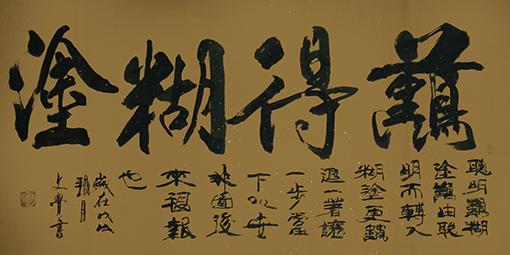 難得糊塗
聰明難糊
塗難由聰
明而轉入
糊塗更難
退一著讓
一步當
下心安
非圖後
來福報
也
歲在戊戌
腊月
書